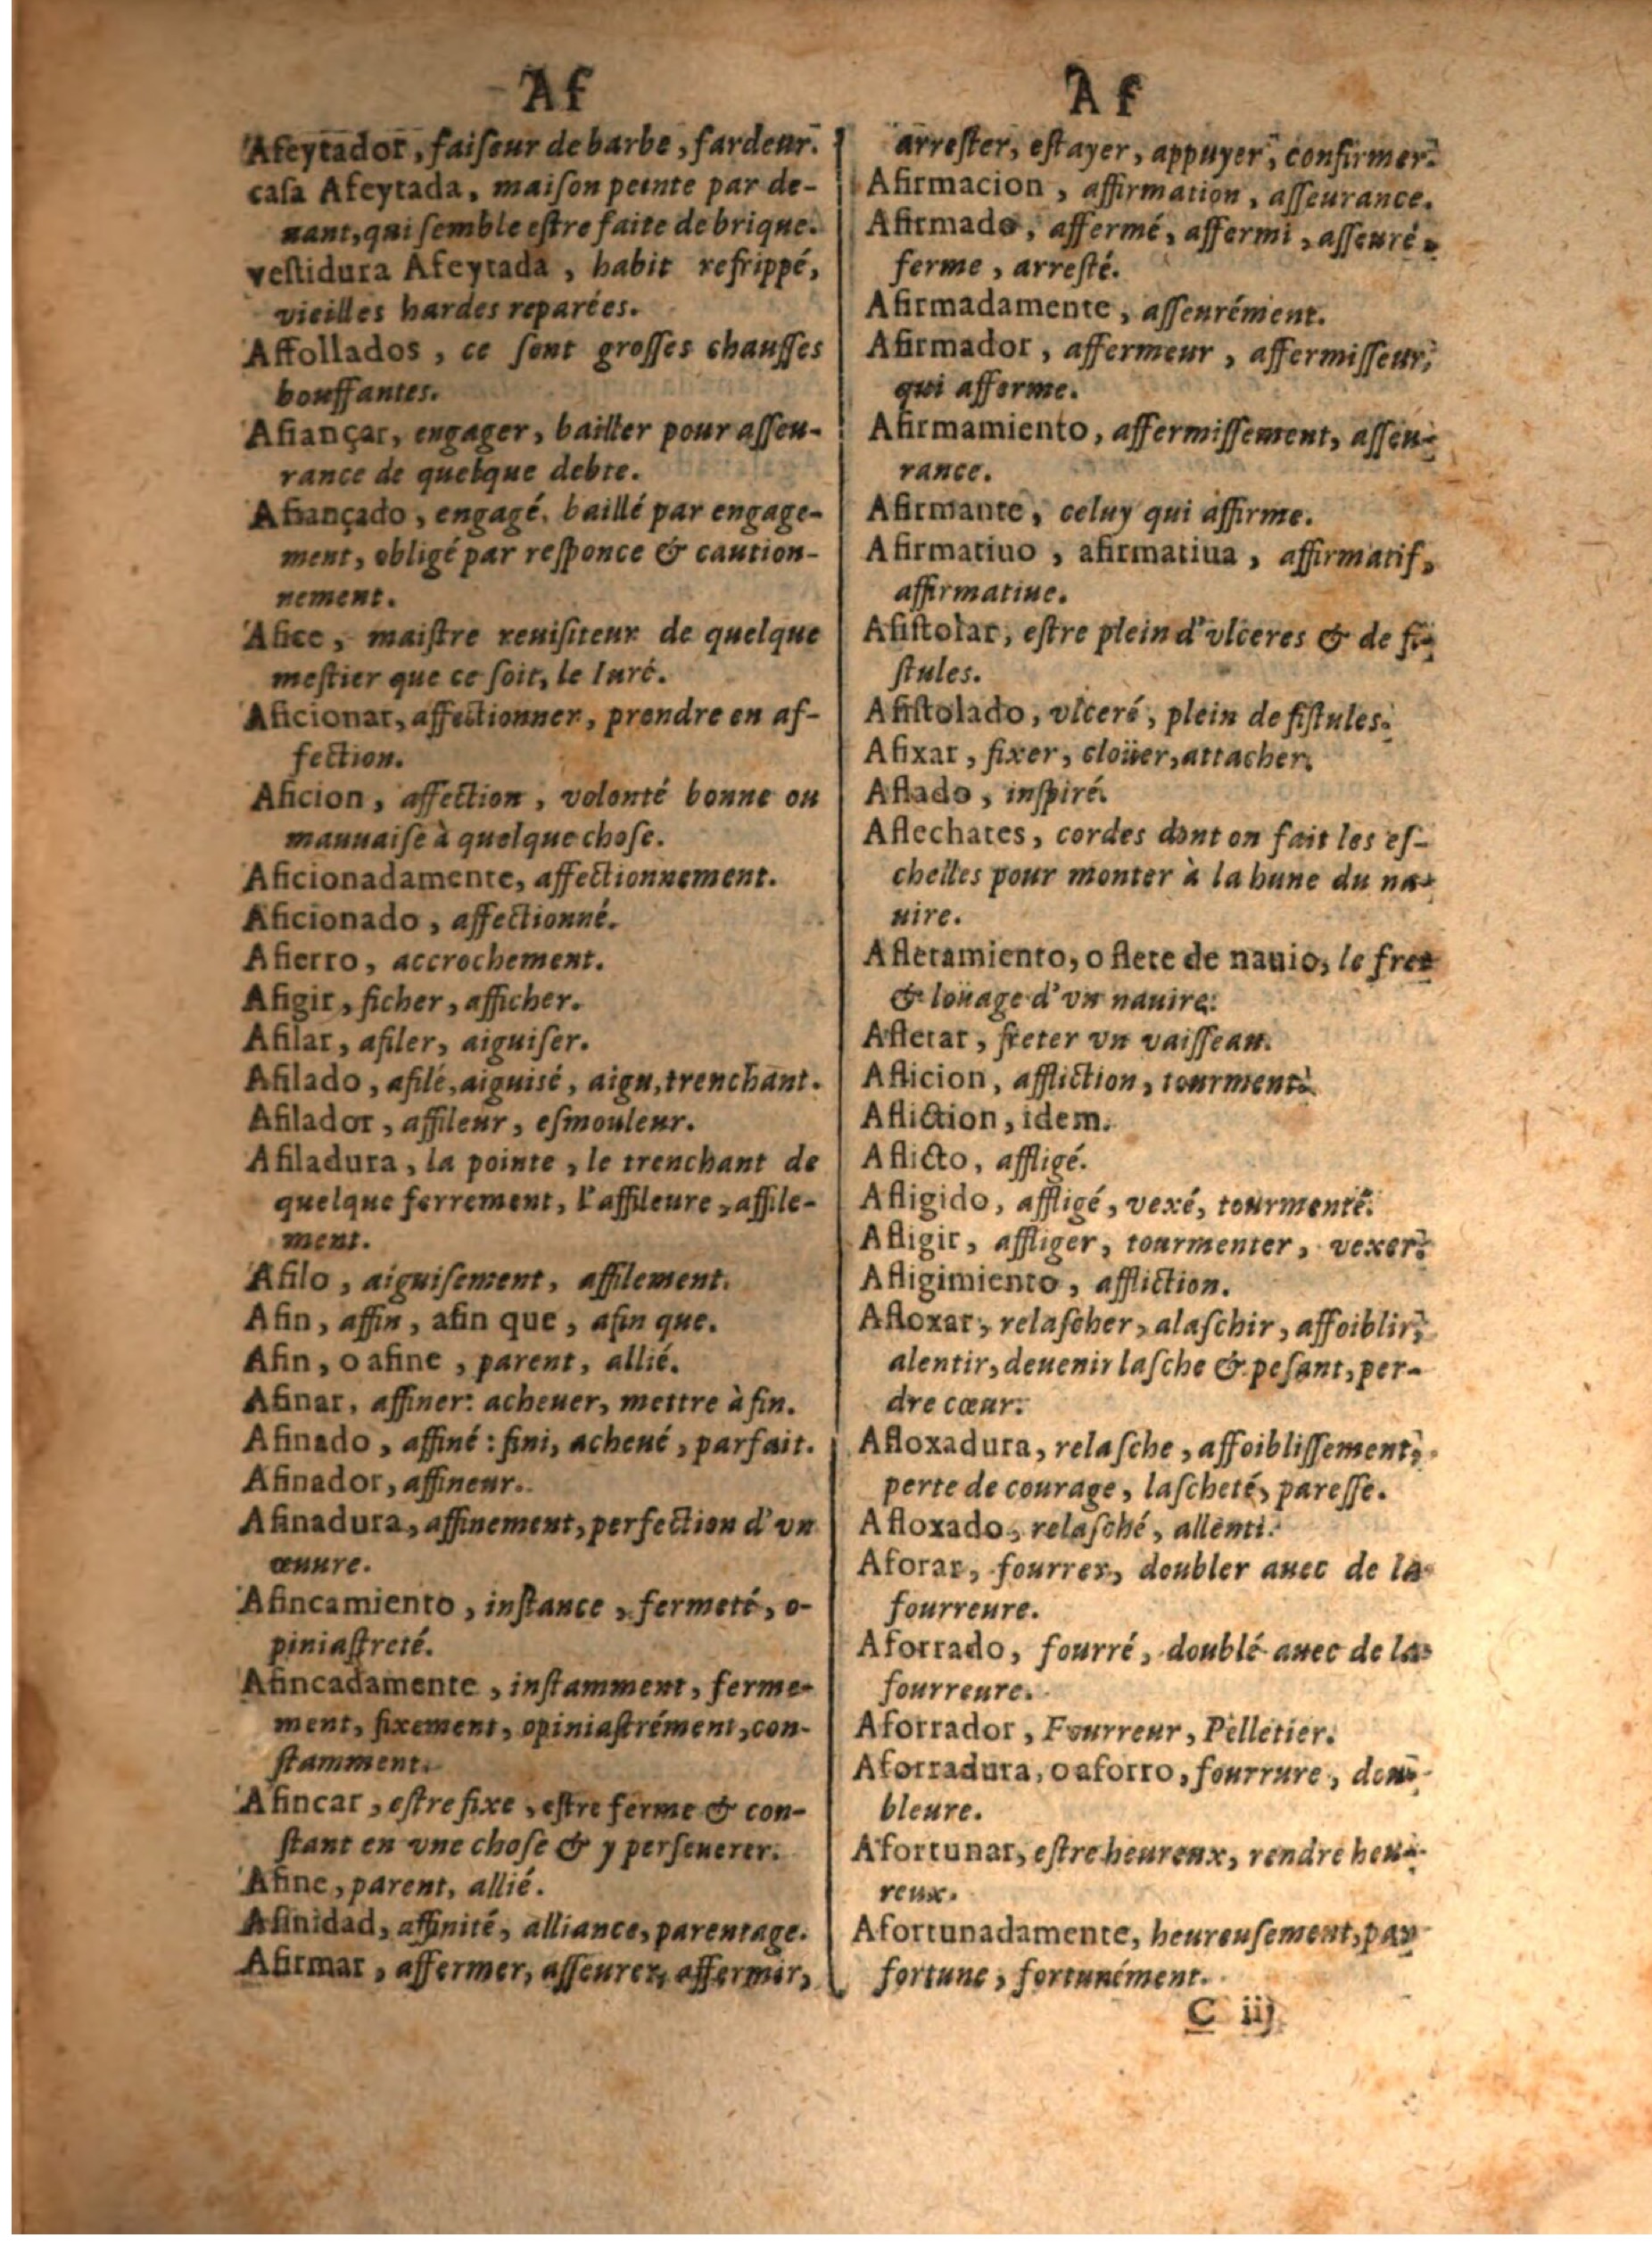 Af
Afeytador, faiſeur de barbe, fardeur.
caſa Afeytada, maiſon peinte par de-
uant, qui ſemble eſtre faite de brique.
veſtidura Afeytada, habit refrippé,
vieilles hardes reparées.
Affollados, ce ſont groſſes chauſſes
bouffantes.
Afiançar, engager, bailler pour aſſeu-
rance de quelque debte.
Afiançado, engagé, baillé par engage-
ment, obligé par reſponce & caution-
nement.
Afice, maiſtre reuiſiteur de quelque
meſtier que ce ſoit, le Iuré.
Aficionar, affectionner, prendre en af-
fection.
Aficion, affection, volonté bonne ou
mauuaiſe à quelque choſe.
Aficionadamente, affectionnement.
Aficionado, affectionné.
Afierro, accrochement.
Afigir, ficher, afficher.
Afilar, afiler, aiguiſer.
Afilado, afilé, aiguisé, aigu, trenchant.
Afilador, affileur, eſmouleur.
Afiladura, la pointe, le trenchant de
quelque ferrement, l'affileure, affile-
ment.
Afilo, aiguiſement, affilement.
Afin, affin, afin que, afin que.
Afin, o afine, parent, allié.
Afinar, affiner: acheuer, mettre à fin.
Afinado, affiné: fini, acheué, parfait.
Afinador, affineur.
Afinadura, affinement, perfection d'vn
œuure.
Afincamiento, inſtance, fermeté, o-
piniaſtreté.
Afincadamente, inſtamment, ferme-
ment, fixement, opiniaſtrément, con-
ſtamment.
Afincar, eſtre fixe, eſtre ferme & con-
ſtant en vne choſe & y perſeuerer.
Afine, parent, allié.
Afinidad, affinité, alliance, parentage.
Afirmar, affermer, aſſeurer, affermir,
Af
arreſter, eſtayer, appuyer, confirmer.
Afirmacion, affirmation, aſſeurance.
Afirmado, affermé, affermi, aſſeuré,
ferme, arreſté.
Afirmadamente, aſſeurément.
Afirmador, affermeur, affermiſſeur,
qui afferme.
Afirmamiento, affermiſſement, aſſeu-
rance.
Afirmante, celuy qui affirme.
Afirmatiuo, afirmatiua, affirmatif,
affirmatiue.
Afiſtolar, eſtre plein d'vlceres & de fi-
ſtules.
Afiſtolado, vlceré, plein de fiſtules.
Afixar, fixer, cloüer, attacher.
Aflado, inſpiré.
Aflechates, cordes dont on fait les eſ-
chelles pour monter à la hune du na-
uire.
Afletamiento, o flete de nauio, le fret
& loüage d'vn nauire.
Afletar, freter vn vaiſſeau.
Aflicion, affliction, tourment.
Afliction, idem.
Aflicto, affligé.
Afligido, affligé, vexé, tourmenté.
Afligir, affliger, tourmenter, vexer.
Afligimiento, affliction.
Afloxar, relaſcher, alaſchir, affoiblir,
alentir, deuenir laſche & peſant, per-
dre cœur.
Afloxadura, relaſche, affoibliſſement,
perte de courage, laſcheté, pareſſe.
Afloxado, relaſché, allenti.
Aforar, fourrer, doubler auec de la
fourreure.
Aforrado, fourré, doublé auec de la
fourreure.
Aforrador, Fourreur, Pelletier.
Aforradura, o aforro, fourrure, dou-
bleure.
Afortunar, eſtre heureux, rendre heu-
reux.
Afortunadamente, heureuſement, par
fortune, fortunément.
C iij